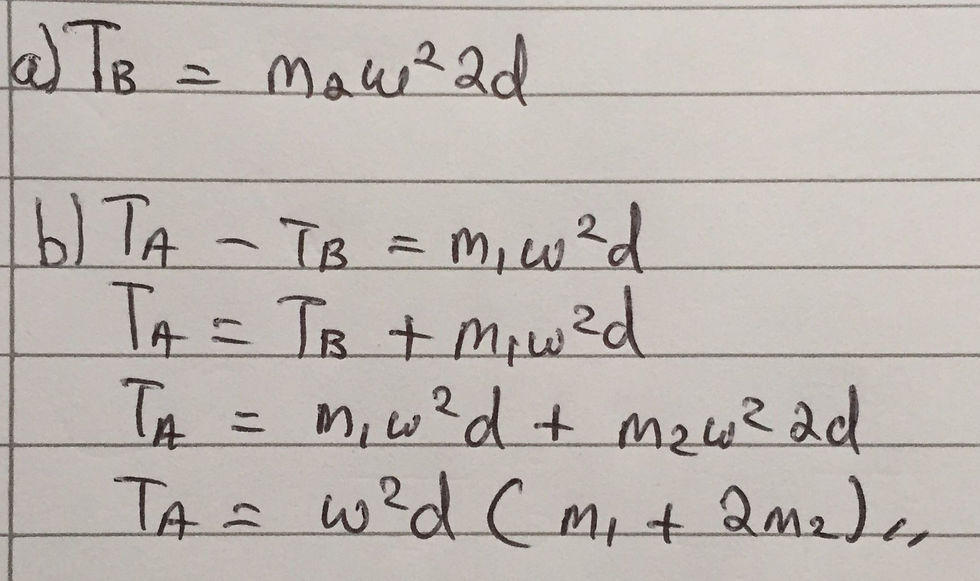 a) T_B = m₂ω²2d
b) T_A - T_B = m₁ω²d
T_A = T_B + m₁ω²d
T_A = m₁ω²d + m₂ω²2d
T_A = ω²d (m₁ + 2m₂)〃